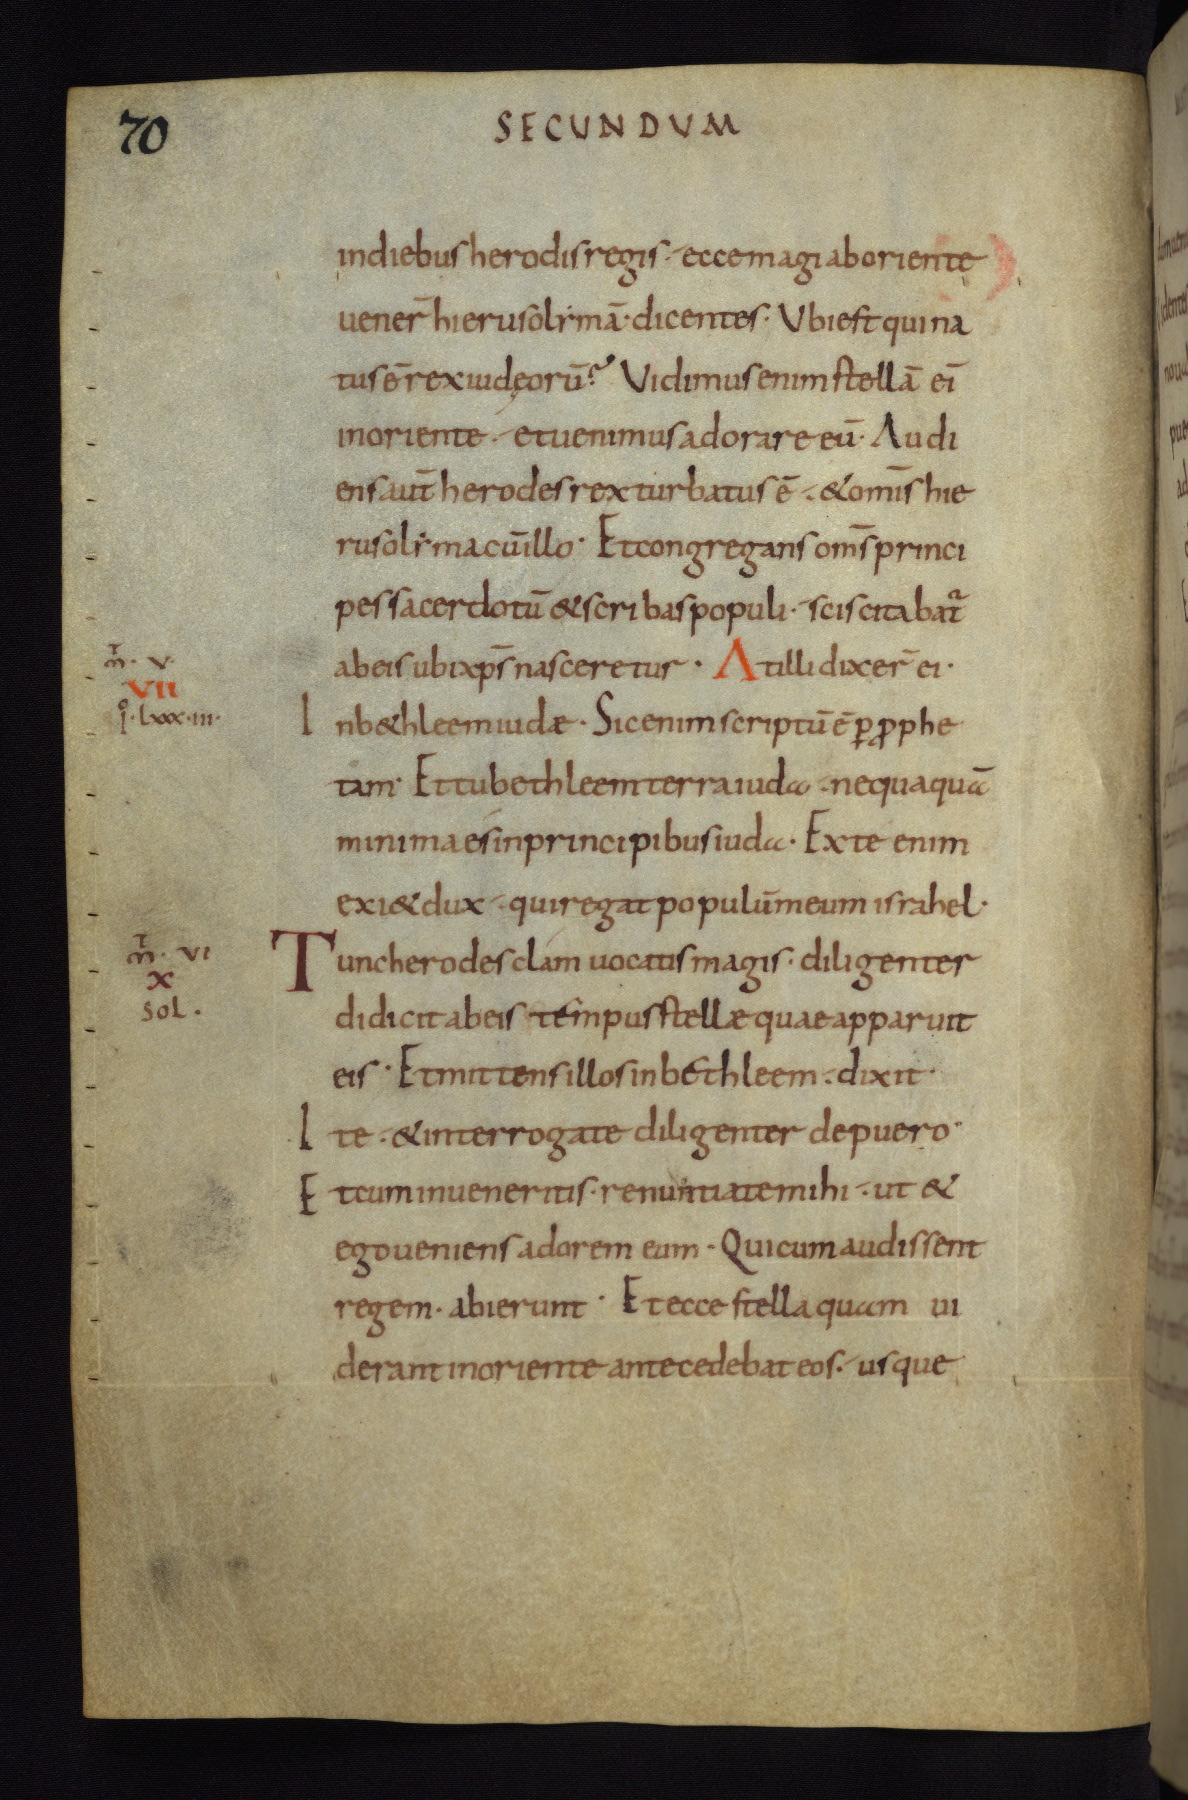 70
SECUNDUM
in diebus herodis regis· ecce magi ab oriente
uener̄ hierusolẏmā· dicentes· Vbi est qui na
tus ē rex iudęorū? Vidimus enim stellā ei̅
in oriente· et uenimus adorare eū· Audi
ens aut̄ herodes rex turbatus ē· & om̄is hie
rusolẏma cū illo· Et congregans om̄s princi
pes sacerdotū & scribas populi· sciscitabat᷑
ab eis ubi xp̄s nasceretur· At illi dixer̄ ei·
m̅· v·
VII
i̊· lxxx·iii·
In b&hleem iudæ· Sic enim scriptū ē ꝑ ꝓphe
tam· Et tu bethleem terra iuda· nequaquā
minima es in principibus iuda· Ex te enim
exi& dux· qui regat populū meum israhel·
m̅· vi
x
sol·
Tunc herodes clam uocatis magis· diligenter
didicit ab eis tempus stellæ quae apparuit
eis· Et mittens illos in bethleem· dixit·
Ite· & interrogate diligenter de puero·
Et cum inueneritis· renuntiate mihi· ut &
ego ueniens adorem eum· Qui cum audissent
regem· abierunt· Et ecce stella quam ui
derant in oriente antecedebat eos· usque